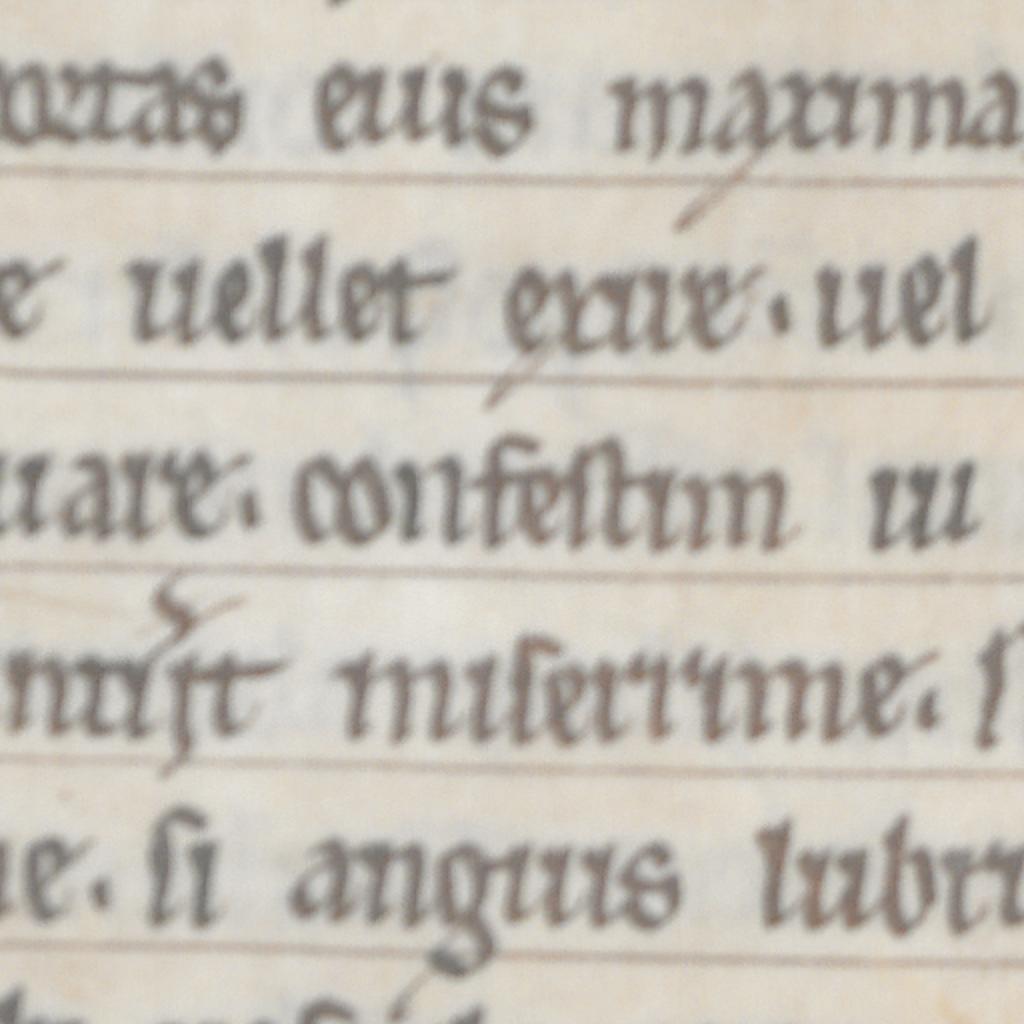 portas eius maxima
e uellet exire. uel
uare. confestim iu
miserrime.
e. si anguis lubri